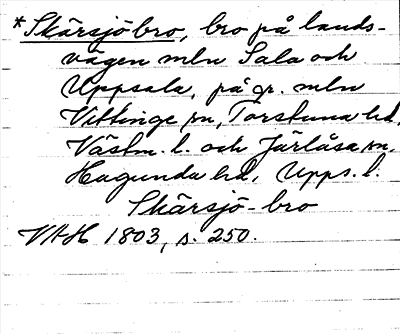 *Skärsjöbro, bro på lands-
vägen mln Sala och
Uppsala, på gr. mln
Vittinge sn, Torstuna hd,
Västm. l. och Järlåsa sn,
Hagunda hd, Upps. l.
Skärsjö-bro
VAH 1803, s. 250.